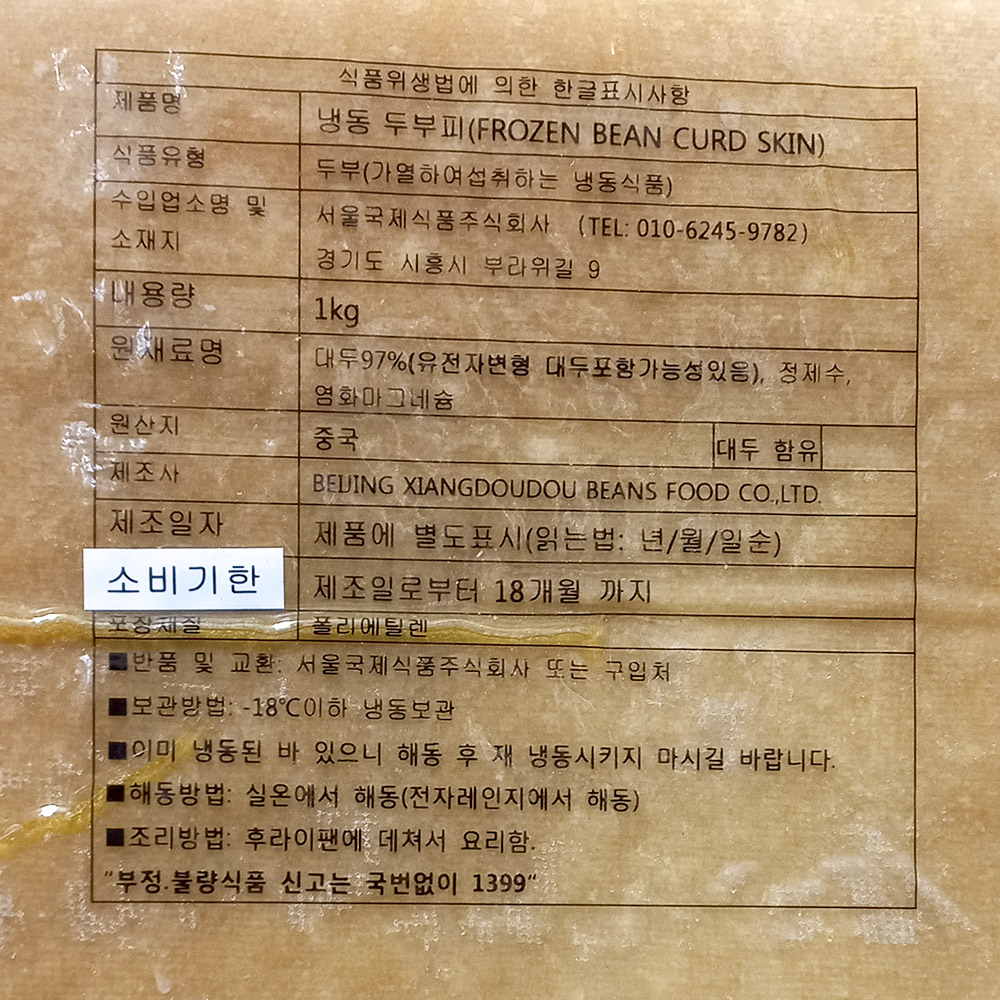 식품위생법에 의한 한글표시사항
제품명 냉동 두부피(FROZEN BEAN CURD SKIN)
식품유형 두부(가열하여섭취하는 냉동식품)
수입업소명 및 소재지 서울국제식품주식회사 (TEL: 010-6245-9782)
경기도 시흥시 부라위길 9
내용량 1kg
원재료명 대두97%(유전자변형 대두포함가능성있음), 정제수,
염화마그네슘
원산지 중국 대두 함유
제조사 BEIJING XIANGDOUDOU BEANS FOOD CO.,LTD.
제조일자 제품에 별도표시(읽는법: 년/월/일순)
소비기한 제조일로부터 18개월 까지
포장재질 폴리에틸렌
■반품 및 교환: 서울국제식품주식회사 또는 구입처
■보관방법: -18℃이하 냉동보관
■이미 냉동된 바 있으니 해동 후 재 냉동시키지 마시길 바랍니다.
■해동방법: 실온에서 해동(전자레인지에서 해동)
■조리방법: 후라이팬에 데쳐서 요리함.
"부정.불량식품 신고는 국번없이 1399"